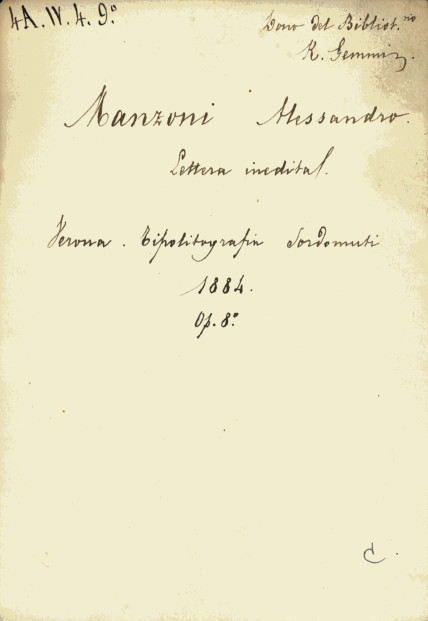 4A.IV.4.9.º
Dono del Bibliot.rio
R. Gemmi
Manzoni Alessandro.
Lettera inedita.
Verona. Tipolitografia Sordomuti
1884.
Op. 8.º
C.